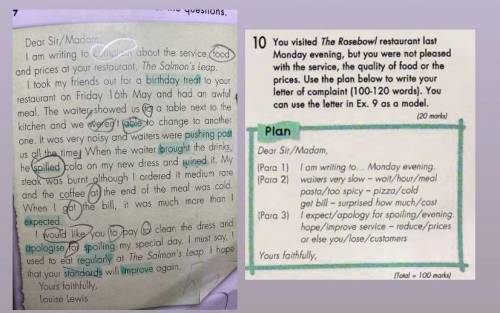 7
questions.
Dear Sir/Madam,
I am writing to complain about the service, food
and prices at your restaurant, The Salmon's Leap.
I took my friends out for a birthday treat to your
restaurant on Friday 16th May and had an awful
meal. The waiter showed us to a table next to the
kitchen and we weren't able to change to another
one. It was very noisy and waiters were pushing past
us all the time. When the waiter brought the drinks,
he spilled cola on my new dress and ruined it. My
steak was burnt although I ordered it medium rare
and the coffee at the end of the meal was cold.
When I got the bill, it was much more than I
expected.
I would like you to pay to clean the dress and
apologise for spoiling my special day. I must say, I
used to eat regularly at The Salmon's Leap. I hope
that your standards will improve again.
Yours faithfully,
Louise Lewis
10 You visited The Rosebowl restaurant last
Monday evening, but you were not pleased
with the service, the quality of food or the
prices. Use the plan below to write your
letter of complaint (100-120 words). You
can use the letter in Ex. 9 as a model.
(20 marks)
Plan
Dear Sir/Madam,
(Para 1) I am writing to... Monday evening.
(Para 2) waiters very slow – wait/hour/meal
pasta/too spicy – pizza/cold
get bill – surprised how much/cost
(Para 3) I expect/apology for spoiling/evening.
hope/improve service – reduce/prices
or else you/lose/customers
Yours faithfully,
(Total = 100 marks)